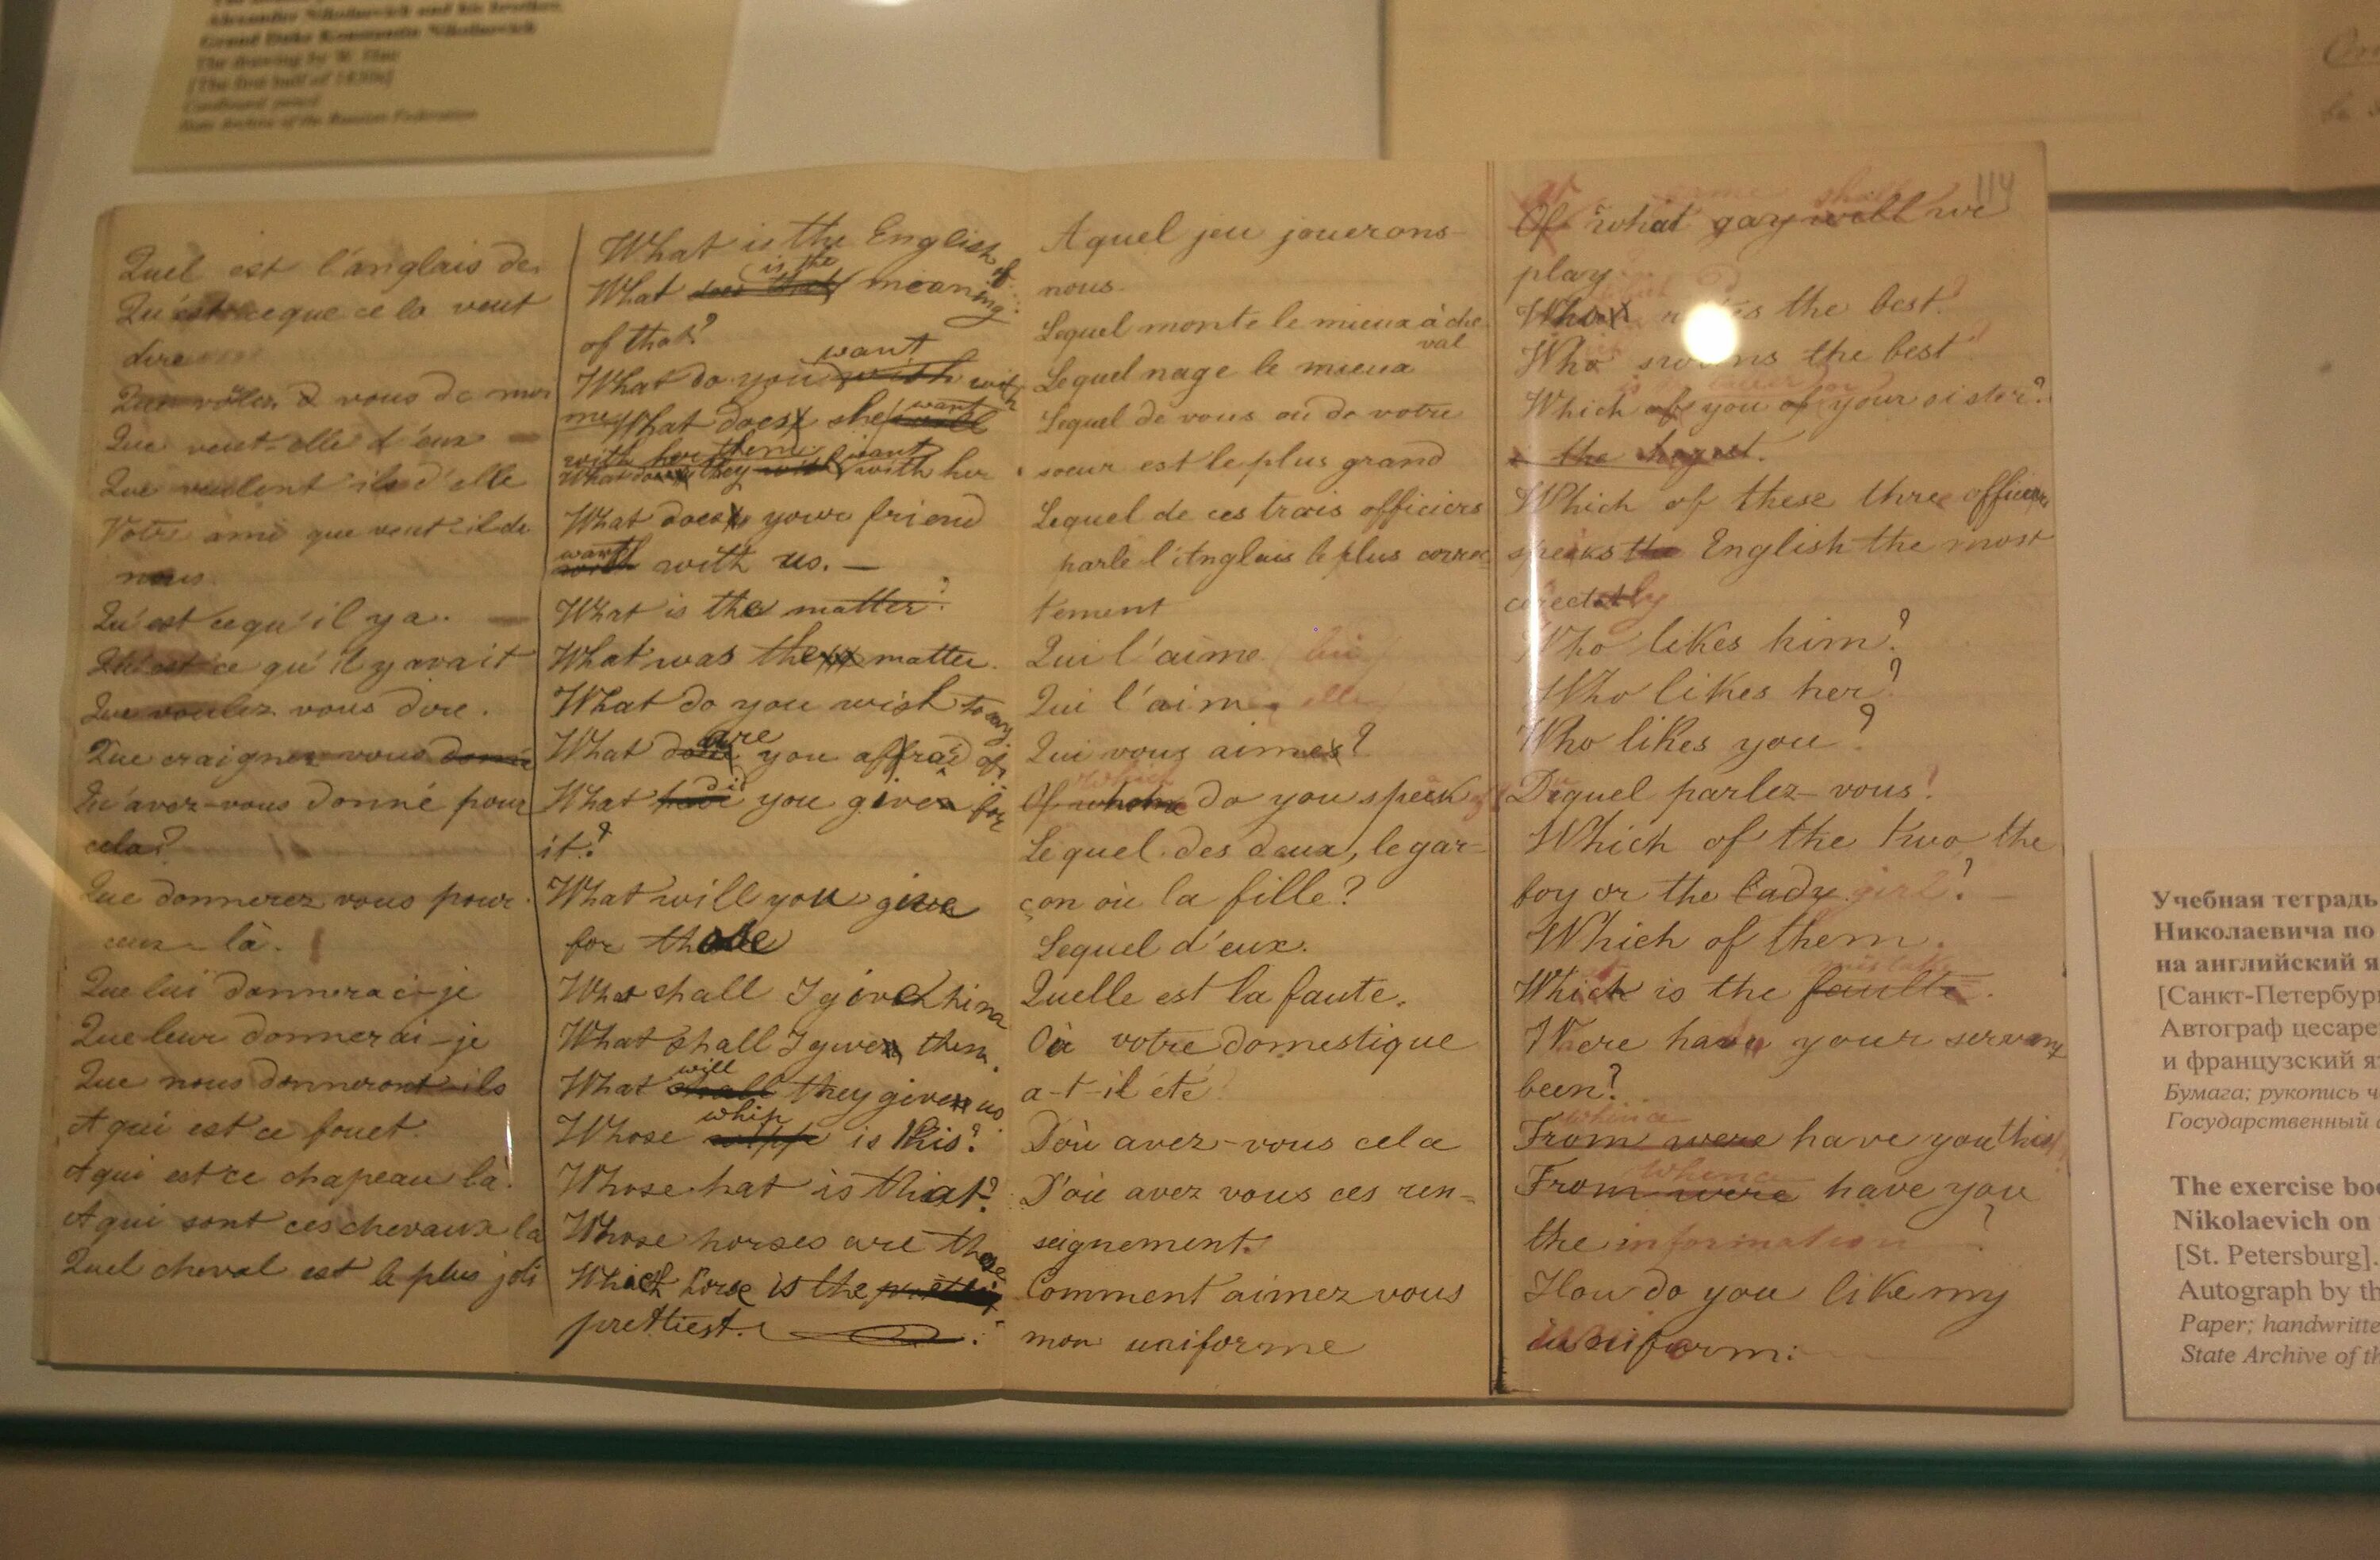 Alexander Nikolaevich and his brother,
Grand Duke Konstantin Nikolaevich
The drawing by W. Hau
[The first half of 1830s]
Cardboard; pencil
State Archive of the Russian Federation
Quel est l'anglais de
Qu'est-ce que ce la veut
dire
vous de moi
Que veut-elle d'eux
Que veulent ils d'elle
Votre ami que veut-il de
nous.
Qu'est ce qu'il y a.
Qu'est-ce qu'il y avait
Que voulez vous dire.
Que craignez vous
Qu'avez-vous donné pour
cela?
Que donnerez vous pour
ceux-là.
Que lui donnerai-je
Que leur donnerai-je
Que nous donneront-ils
A qui est ce fouet.
A qui est ce chapeau là.
A qui sont ces chevaux la
Quel cheval est le plus joli
What is the English
of
is the
What does that meaning
of that?
want
What do you wish with
me What does she will
want
with her them
want
What does they with her
What does your friend
want
with us. —
What is the matter?
What was the matter.
What do you wish to say
are
What you afraid of
did
What have you given for
it?
What will you give
for those
What shall I give him
What shall I give them.
will
What shall they give us.
whip
Whose is this?
Whose hat is that?
Whose horses are those
Which horse is the
prettiest.
A quel jeu jouerons-
nous.
Lequel monte le mieux à che
val
Lequel nage le mieux
Lequel de vous ou de votre
soeur est le plus grand
Lequel de ces trois officiers
parle l'Anglais le plus correc
tement
Qui l'aime lui
Qui l'aime elle
Qui vous aimes?
which
Of whom do you speak of
Lequel des deux, le gar-
çon où la fille?
Lequel d'eux.
Quelle est la faute.
Où votre domestique
a-t-il été?
D'où avez-vous cela
D'où avez vous ces ren-
seignement.
Comment aimez vous
mon uniforme
114
At game shall
Of what gay will we
play.
the best?
Who the best
is the taller or
Which of you of your sister?
the
Which of these three officers
speaks the English the most
correctly
Who likes him?
Who likes her?
Who likes you?
Duquel parlez-vous?
Which of the two the
boy or the lady girl?
Which of them.
mistake
Which is the faulte.
Were have your servant
been?
whence
From were have you this?
Whence
From were have you
the information ?
How do you like my
uniform:
Учебная тетрадь
Николаевича по
на английский я
[Санкт-Петербур
Автограф цесаре
и французский я
Бумага; рукопись ч
Государственный
The exercise boo
Nikolaevich on
[St. Petersburg].
Autograph by th
Paper; handwritte
State Archive of th